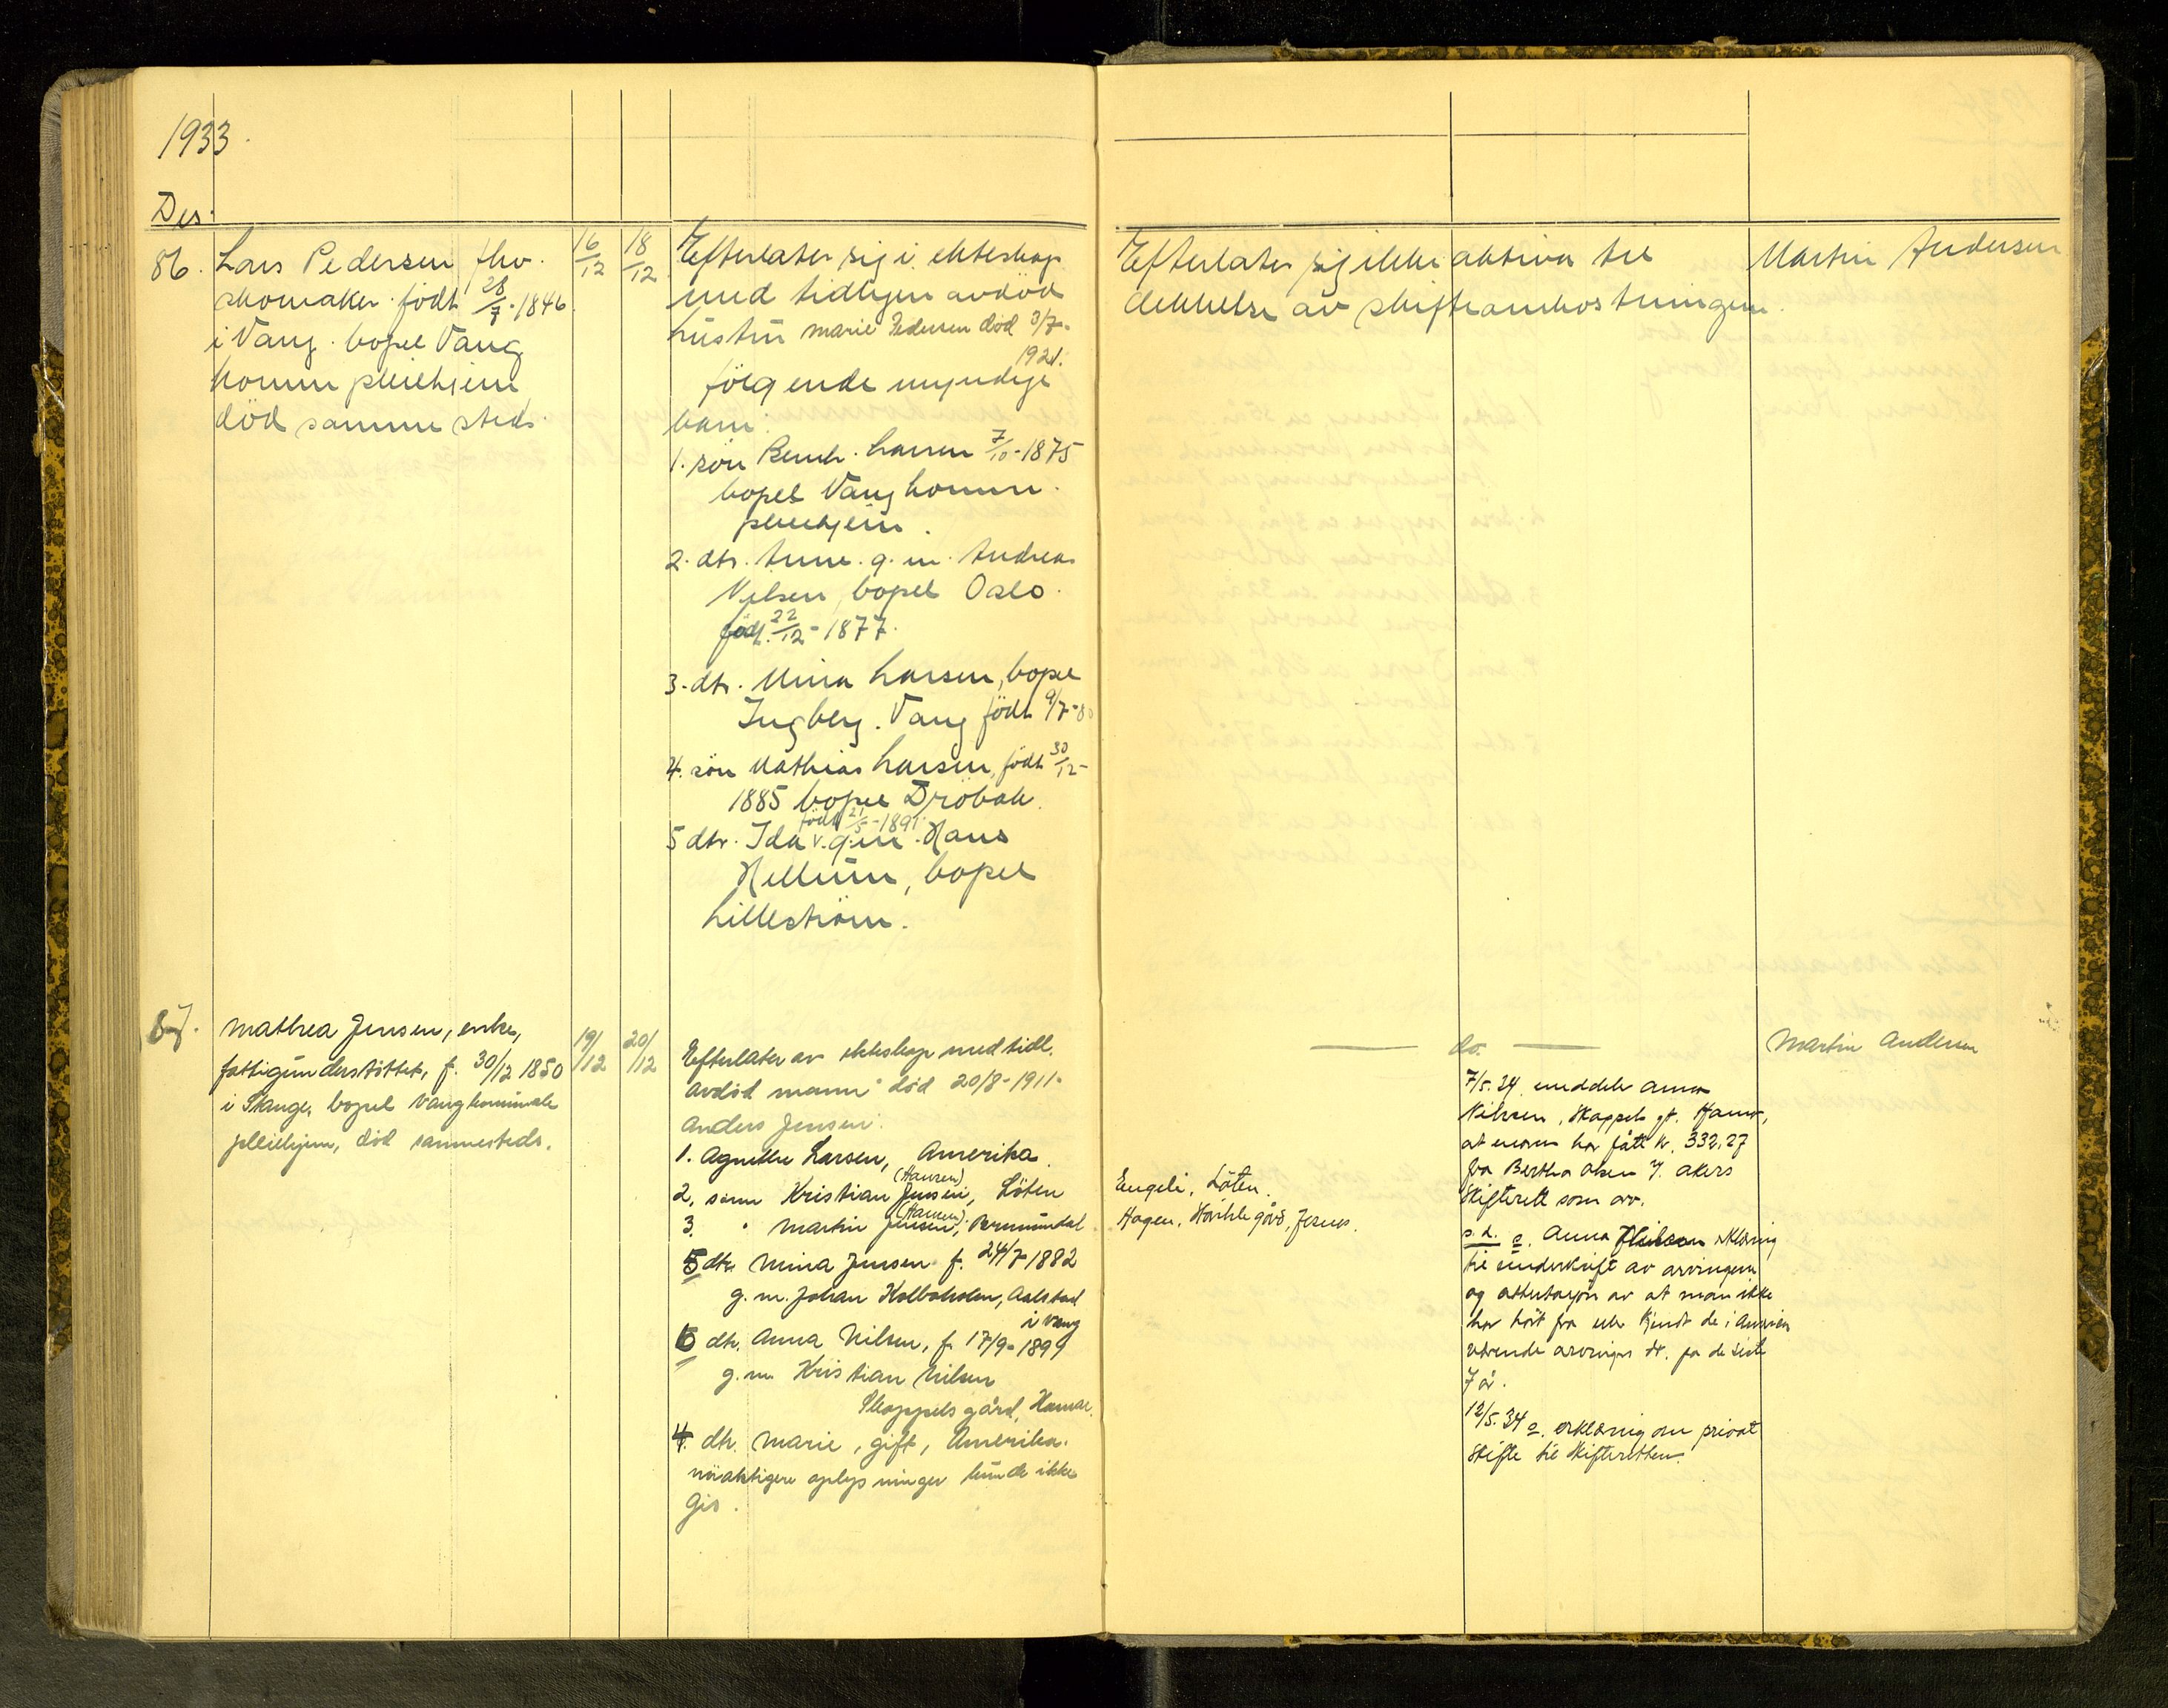 1933.
Des.
86. Lars Pedersen fhv.
skomaker. født 28/7-1846
i Vang. bopel Vang
komm pleiehjem
død samme steds.
16/12
18/12
Efterlater sig i ekteskap
med tidligere avdød
hustru Marie Pedersen død 3/7-
1921.
følgende myndige
barn:
1. søn Bernh. Larsen 7/10-1875
bopel Vang komm.
pleiehjem.
2. dtr. Anne. g. m. Andreas
Nilsen, bopel Oslo.
født 22/12-1877.
3. dtr. Mina Larsen, bopel
Ingberg. Vang født 9/7-80
4. søn Mathias Larsen, født 30/12-
1885 bopel Drøbak.
født 21/5-1891.
5 dtr. Ida v. g. m. Hans
Hellum, bopel
Lillestrøm.
Efterlater sig ikke aktiva til
dekkelse av skifteomkostningene.
Martin Andersen
87. Mathea Jensen, enke,
fattigunderstøttet, f. 30/12 1850
i Stange, bopel Vang kommunale
pleiehjem, død sammesteds.
19/12
20/12
Efterlater av ekteskap med tidl.
avdød mann død 20/8-1911.
Anders Jensen:
1. Agnethe Larsen, Amerika.
(Hansen)
2, sønn Kristian Jensen, Løten
(Hansen)
3. " Martin Jensen, Brumundal
5 dtr. Mina Jensen f. 24/7 1882
g. m. Johan Kolboholen, Aalstad
i Vang
6 dtr. Anna Nilsen, f. 17/9-1899
g. m. Kristian Nilsen
Skappels gård, Hamar.
4. dtr. Marie, gift, Amerika.
nøiaktigere oplysninger kunde ikke
gis.
Engeli, Løten.
Hagen, gård,
do.
Martin Andersen
7/5.34 meddeler Anna
Nilsen, Skappels gt. Hamar,
at moren har fått kr. 332.27
fra Bertha Olsen v. Akers
Skifterett som arv.
s.d. s. Anna Nilsen erklæring
til underskrift av arvingene
og attestasjon av at man ikke
har hørt fra eller kjendt de i Amerika
værende arvinger på de siste
7 år.
12/5.34 s. erklæring om privat
skifte til Skifteretten.